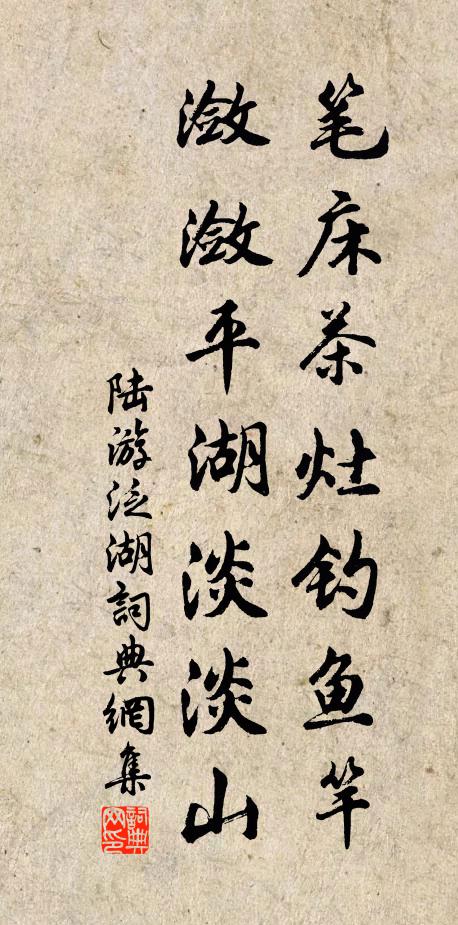 笔床茶灶钓鱼竿
潋潋平湖淡淡山
陆游泛湖詞典網集
詞典
网印